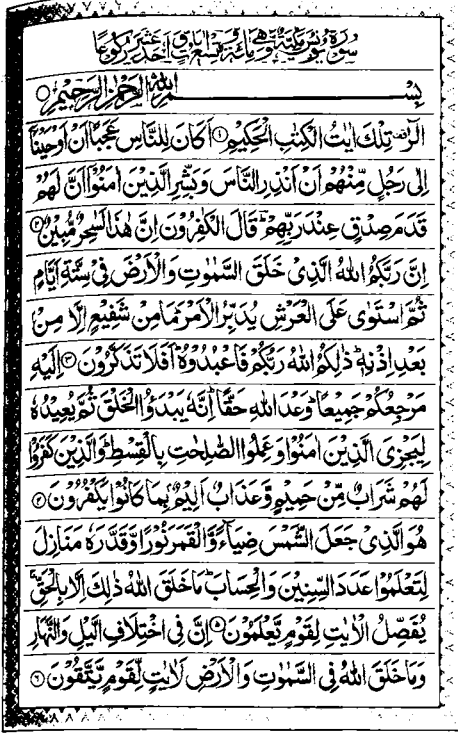 سُوْرَةُ يُوْنُسَ مَكِّيَّةٌ وَّهِيَ مِائَةٌ وَّتِسْعُ اٰيَاتٍ وَّاَحَدَ عَشَرَ رُكُوْعًا
بِسْمِ اللّٰهِ الرَّحْمٰنِ الرَّحِيْمِ ○
الٓرٰ تِلْكَ اٰيٰتُ الْكِتٰبِ الْحَكِيْمِ ۝۱ اَكَانَ لِلنَّاسِ عَجَبًا اَنْ اَوْحَيْنَاۤ
اِلٰى رَجُلٍ مِّنْهُمْ اَنْ اَنْذِرِ النَّاسَ وَبَشِّرِ الَّذِيْنَ اٰمَنُوْۤا اَنَّ لَهُمْ
قَدَمَ صِدْقٍ عِنْدَ رَبِّهِمْ ؕ قَالَ الْكٰفِرُوْنَ اِنَّ هٰذَا لَسٰحِرٌ مُّبِيْنٌ ۝۲
اِنَّ رَبَّكُمُ اللّٰهُ الَّذِيْ خَلَقَ السَّمٰوٰتِ وَالْاَرْضَ فِيْ سِتَّةِ اَيَّامٍ
ثُمَّ اسْتَوٰى عَلَى الْعَرْشِ يُدَبِّرُ الْاَمْرَ ؕ مَا مِنْ شَفِيْعٍ اِلَّا مِنْۢ
بَعْدِ اِذْنِهٖ ؕ ذٰلِكُمُ اللّٰهُ رَبُّكُمْ فَاعْبُدُوْهُ ؕ اَفَلَا تَذَكَّرُوْنَ ۝۳ اِلَيْهِ
مَرْجِعُكُمْ جَمِيْعًا ؕ وَعْدَ اللّٰهِ حَقًّا ؕ اِنَّهٗ يَبْدَؤُا الْخَلْقَ ثُمَّ يُعِيْدُهٗ
لِيَجْزِيَ الَّذِيْنَ اٰمَنُوْا وَعَمِلُوا الصّٰلِحٰتِ بِالْقِسْطِ ؕ وَالَّذِيْنَ كَفَرُوْا
لَهُمْ شَرَابٌ مِّنْ حَمِيْمٍ وَّعَذَابٌ اَلِيْمٌۢ بِمَا كَانُوْا يَكْفُرُوْنَ ۝۴
هُوَ الَّذِيْ جَعَلَ الشَّمْسَ ضِيَآءً وَّالْقَمَرَ نُوْرًا وَّقَدَّرَهٗ مَنَازِلَ
لِتَعْلَمُوْا عَدَدَ السِّنِيْنَ وَالْحِسَابَ ؕ مَا خَلَقَ اللّٰهُ ذٰلِكَ اِلَّا بِالْحَقِّ ۚ
يُفَصِّلُ الْاٰيٰتِ لِقَوْمٍ يَّعْلَمُوْنَ ۝۵ اِنَّ فِي اخْتِلَافِ الَّيْلِ وَالنَّهَارِ
وَمَا خَلَقَ اللّٰهُ فِي السَّمٰوٰتِ وَالْاَرْضِ لَاٰيٰتٍ لِّقَوْمٍ يَّتَّقُوْنَ ۝۶